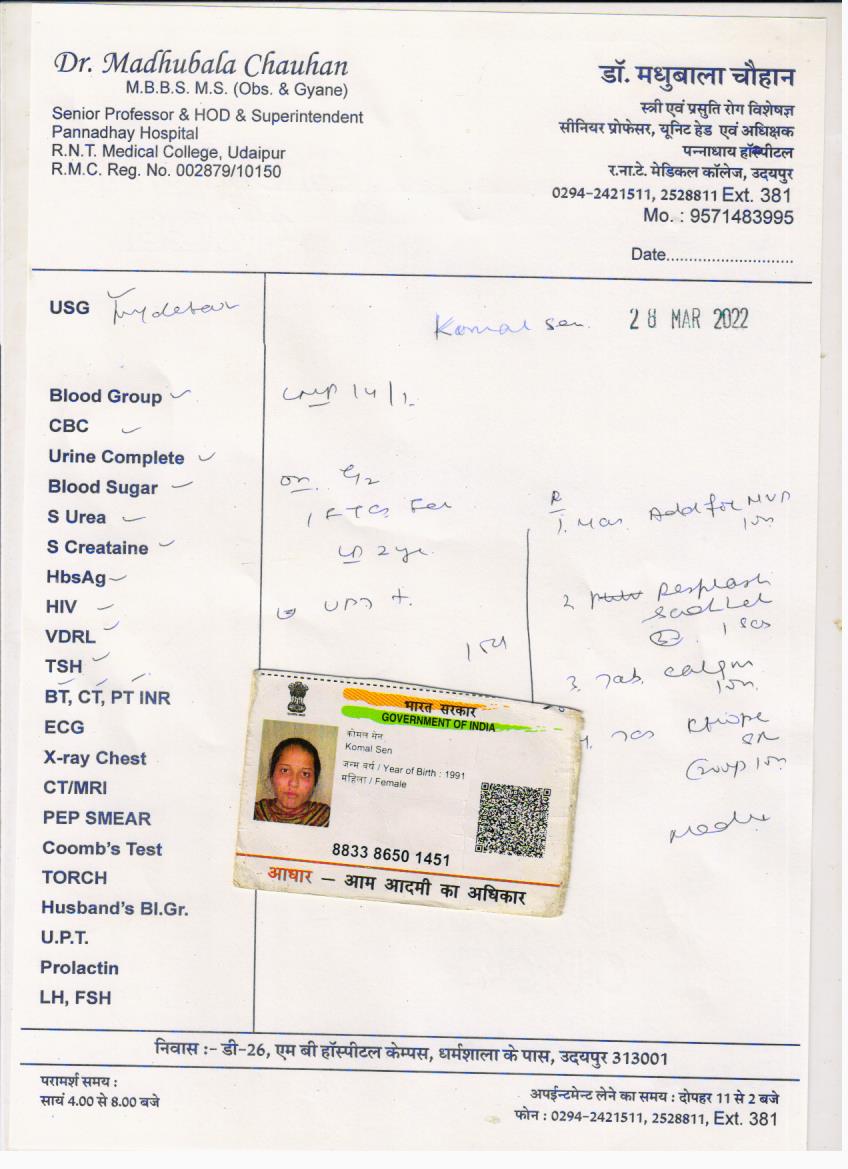 Dr. Madhubala Chauhan
M.B.B.S. M.S. (Obs. & Gyane)
Senior Professor & HOD & Superintendent
Pannadhay Hospital
R.N.T. Medical College, Udaipur
R.M.C. Reg. No. 002879/10150
डॉ. मधुबाला चौहान
स्त्री एवं प्रसुति रोग विशेषज्ञ
सीनियर प्रोफेसर, यूनिट हेड एवं अधिक्षक
पन्नाधाय हॉस्पीटल
र.ना.टे. मेडिकल कॉलेज, उदयपुर
0294-2421511, 2528811 Ext. 381
Mo. : 9571483995
Date............................
USG
Komal Sen.
28 MAR 2022
Blood Group
CBC
Urine Complete
Blood Sugar
S Urea
S Creataine
HbsAg
HIV
VDRL
TSH
BT, CT, PT INR
ECG
X-ray Chest
CT/MRI
PEP SMEAR
Coomb's Test
TORCH
Husband's Bl.Gr.
U.P.T.
Prolactin
LH, FSH
LMP 14/1
G2
1 FTCS
2 yr.
R
1.
2
3.
4.
भारत सरकार
GOVERNMENT OF INDIA
कोमल सेन
Komal Sen
जन्म वर्ष / Year of Birth : 1991
महिला / Female
8833 8650 1451
आधार – आम आदमी का अधिकार
निवास :- डी-26, एम बी हॉस्पीटल केम्पस, धर्मशाला के पास, उदयपुर 313001
परामर्श समय :
सायं 4.00 से 8.00 बजे
अपईन्टमेन्ट लेने का समय : दोपहर 11 से 2 बजे
फोन : 0294-2421511, 2528811, Ext. 381